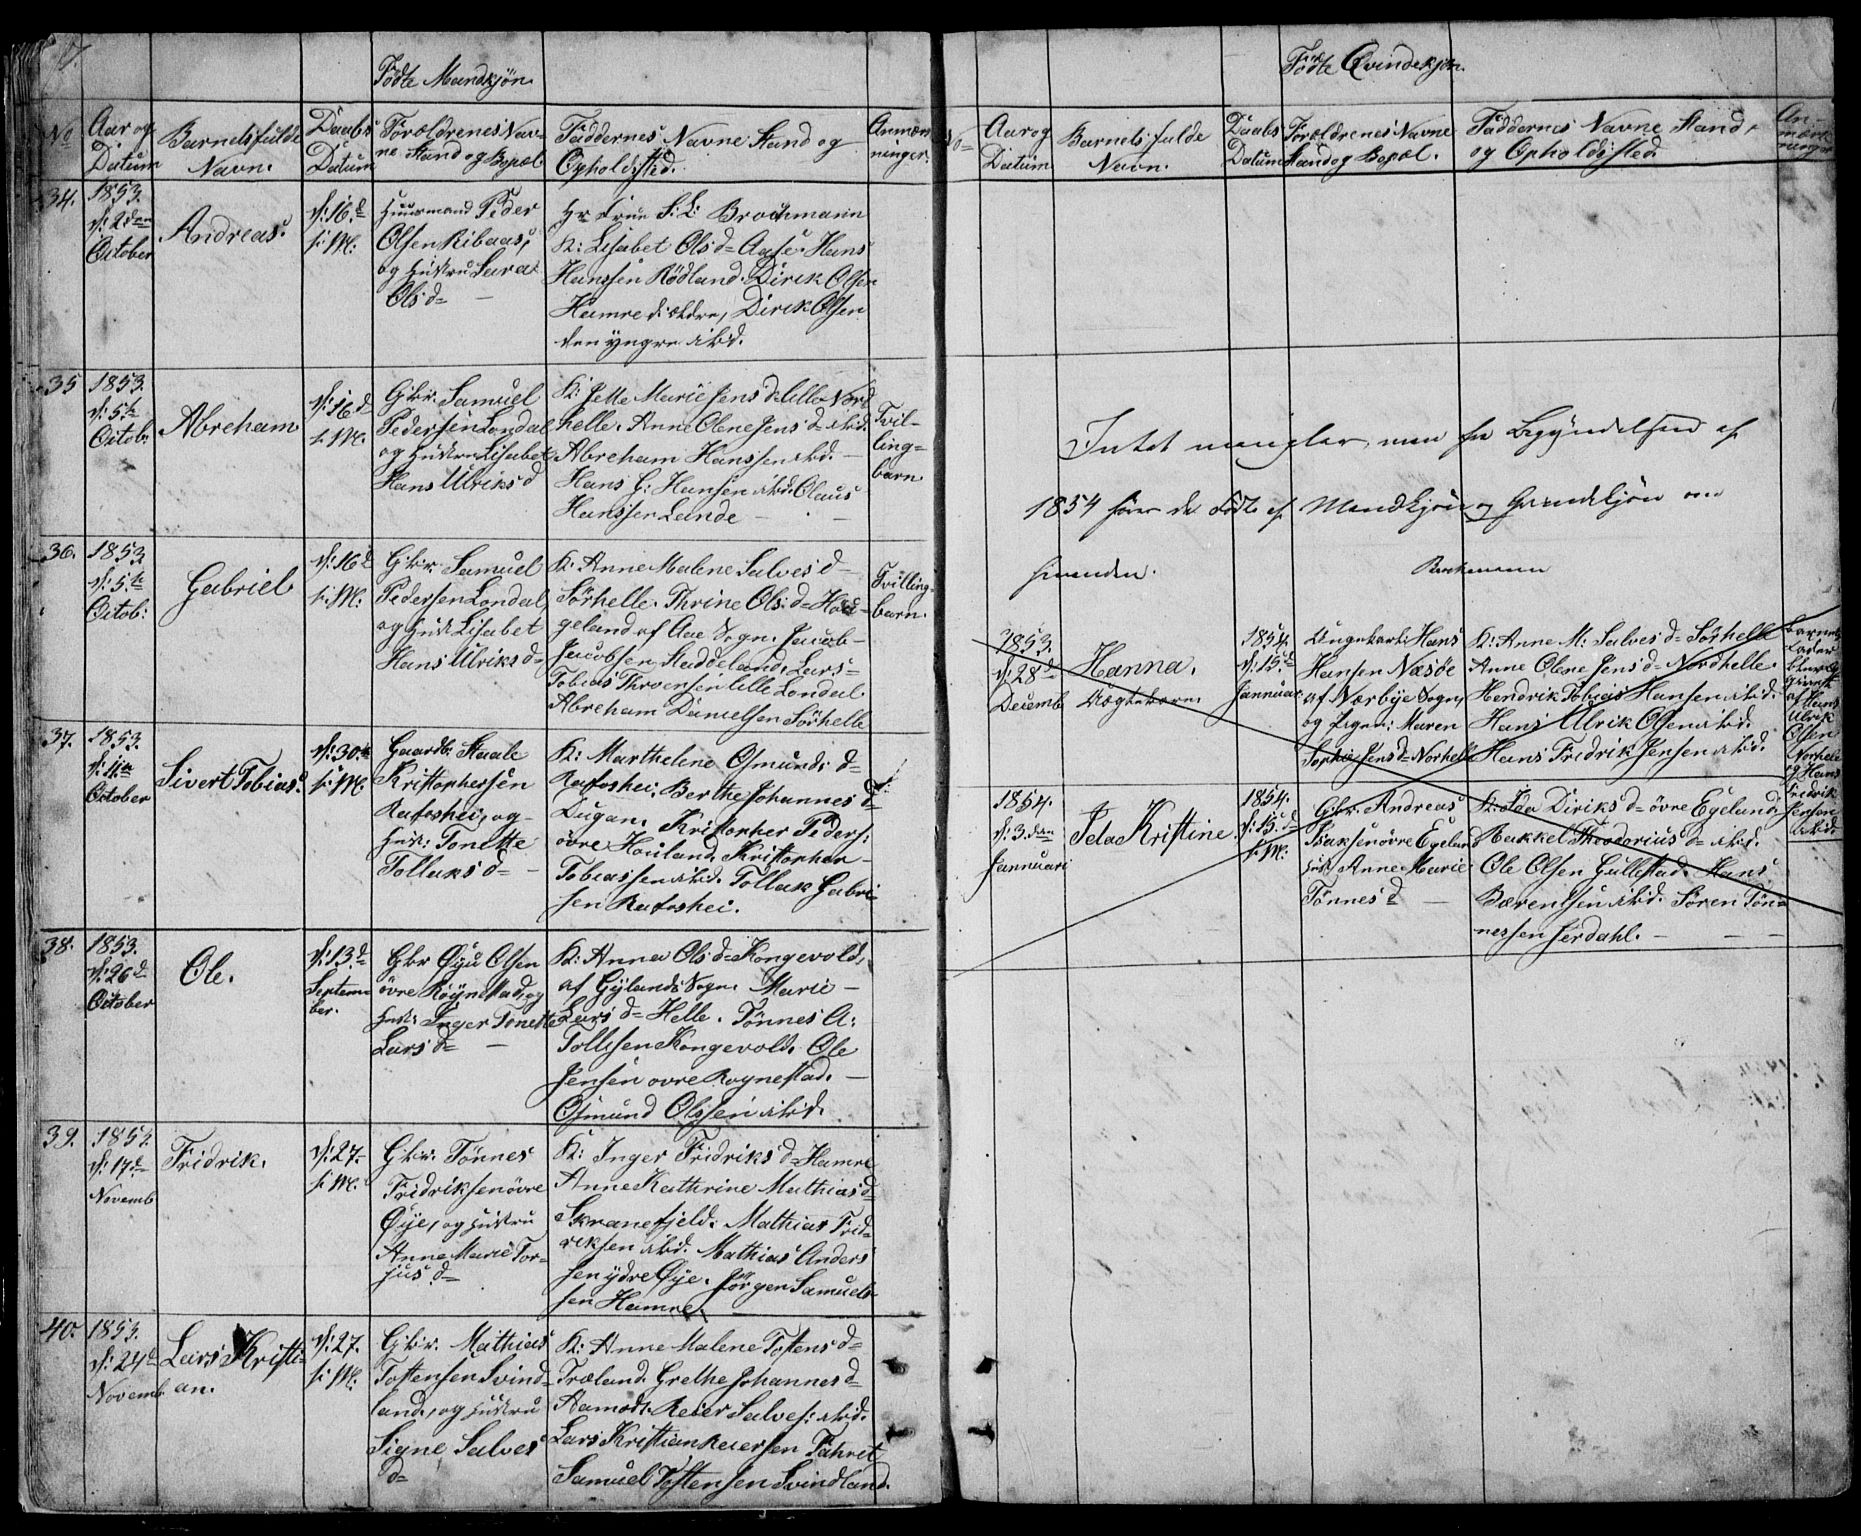 Födte Mandkjön.
No
Aar og
Datum
Barnets fulde
Navn.
Daabs
Datum
Forældrenes Nav-
ne Stand og Bopæl
Faddernes Navne Stand og
Opholdssted.
Anmær
ninger.
34.
1853.
d: 2den
October
Andreas.
d: 16. d
s: M:
Huusmand Peder
Olsen Ribaas,
og Hustru Sara
Ols d= —
Hr Frue S: L: Brochmann
K: Lisabet Ols d= Aase. Hans
Hanssen Rödland. Dirik Olsen
Hamre d: ældre, Dirik Olsen
den yngre ibid.
35
1853.
d: 5te
Octob:
Abreham
d: 16 d
s: M:
Gbr. Samuel
Pedersen Londal
og Hustru Lisabet
Hans Ulriks d
K: Jette Marie Jens d= lille Nord
helle. Anne Olene Jens d= ibid.
Abreham Hanssen ibid. —
Hans G: Hansen ibid. Olaus
Hanssen Lande — . —
Tvil-
ling=
barn.
36.
1853
d: 5te
Octob:
Gabriel
d: 16 d
s: M:
Gbr. Samuel
Pedersen Londal,
og Hust: Lisabet
Hans Ulriks d=
K: Anne Malene Salves d—
Sörhelle. Thrine Ols: d= Hou-
geland af Aae Sogn. Jacob-
Jacobsen Steddeland. Lars=
Tobias Throensen lille Londal.
Abreham Danielsen Sörhelle
Tvilling=
barn.
37.
1853.
d: 4de
October
Sivert Tobias.
d: 30te
s: M:
Gaardbr. Staale
Kristophersen
Rafoshei, og-
Hust: Tonette
Tollaks d= —
K: Martheline Osmunds d=
Rafoshei. Berthe Johannes d=
Dugan. Kristopher Peders:
övre Houland. Kristopher-
Tobiassen ibid. Tollak Gabri-
sen Rafoshei.
38.
1853.
d: 26 d
October
Ole.
d: 13. d
Septem
ber.
Gbr Öyu Olsen
övre Röynestad, og
Hust: Inger Tonette
Lars d= —
K: Anna Ols d= Kongevold,
af Gylands Sogn. Marie —
Lars d= Helle. Tönnes A:
Tollssen Kongevold. Ole
Jensen ovre Roynestad. —
Osmund Olssen ibid.
39.
1853.
d: 17 d=
Novemb
Fridrik.
d: 27.
s: M:
Gbr. Tönnes
Fridriksen övre
Öye, og Hustru
Anne Marie Tor-
jus d=
K: Inger Fridriks d= Hamre
Anne Kathrine Mathias d=
Skranefjeld. Mathias Frid-
riksen ibid. Mathias Anders
sen ydre Öye. Jörgen Samuels-
sen Hamre.
40.
1853.
d: 24 d
Novemb
Lars Kristi-
an.
d: 27.
s: M:
Gbr. Mathias
Tostensen Svind-
land, og Hustru
Signe Salves
d=
K: Anne Malene Tostens d=
Træland. Grethe Johannes d=
Aamodt. Reier Salves: ibid.
Lars Kristian Reiersen Fahret
Samuel Tostensen Svindland.
Födte Qvindekjön.
No=
Aar og
Datum
Barnets fulde
Navn.
Daabs
Datum
Forældrenes Navne
Stand og Bopæl.
Faddernes Navne Stand
og Opholdssted.
An-
mærk
ninger
Intet mangler, men fra Begyndelsen af
1854 føres de fødte af Mandkjøn og Qvindekjøn om
hinanden. Brochmann
1853.
d: 28 d=
Decemb
Hanna.
Uægtebarn.
1854.
d: 15 d=
Januar
Ungekarl: Hans
Hansen Næsöe
af Nærbye Sogn,
og Pigen: Maren
Sophie Jens d= Norhelle
K: Anne M: Salves d= Sörhelle
Anne Olene Jens d= Nordhelle.
Hendrik Tobias Hansen ibid.
Hans Ulrik Olsen ibid.
Hans Fridrik Jensen ibid.
Barnets
Fader
blev
af Hans
Ulrik
Olsen
Norhelle
og Hans
Fridrik
Jensen
ibid.
1854.
d: 3. den
Januari
Jela Kristine
1854.
d: 15. d
s: M:
Gbr. Andreas
Isaksen övre Egeland
Hust: Anne Marie
Tönnes d —
K: Lea Diriks d= övre Egeland.
Rakkel Theodorius d= ibid.
Ole Olsen Gullestad. Hans
Bærentsen ibid. Sören Tön-
nessen Sirdahl. — — —